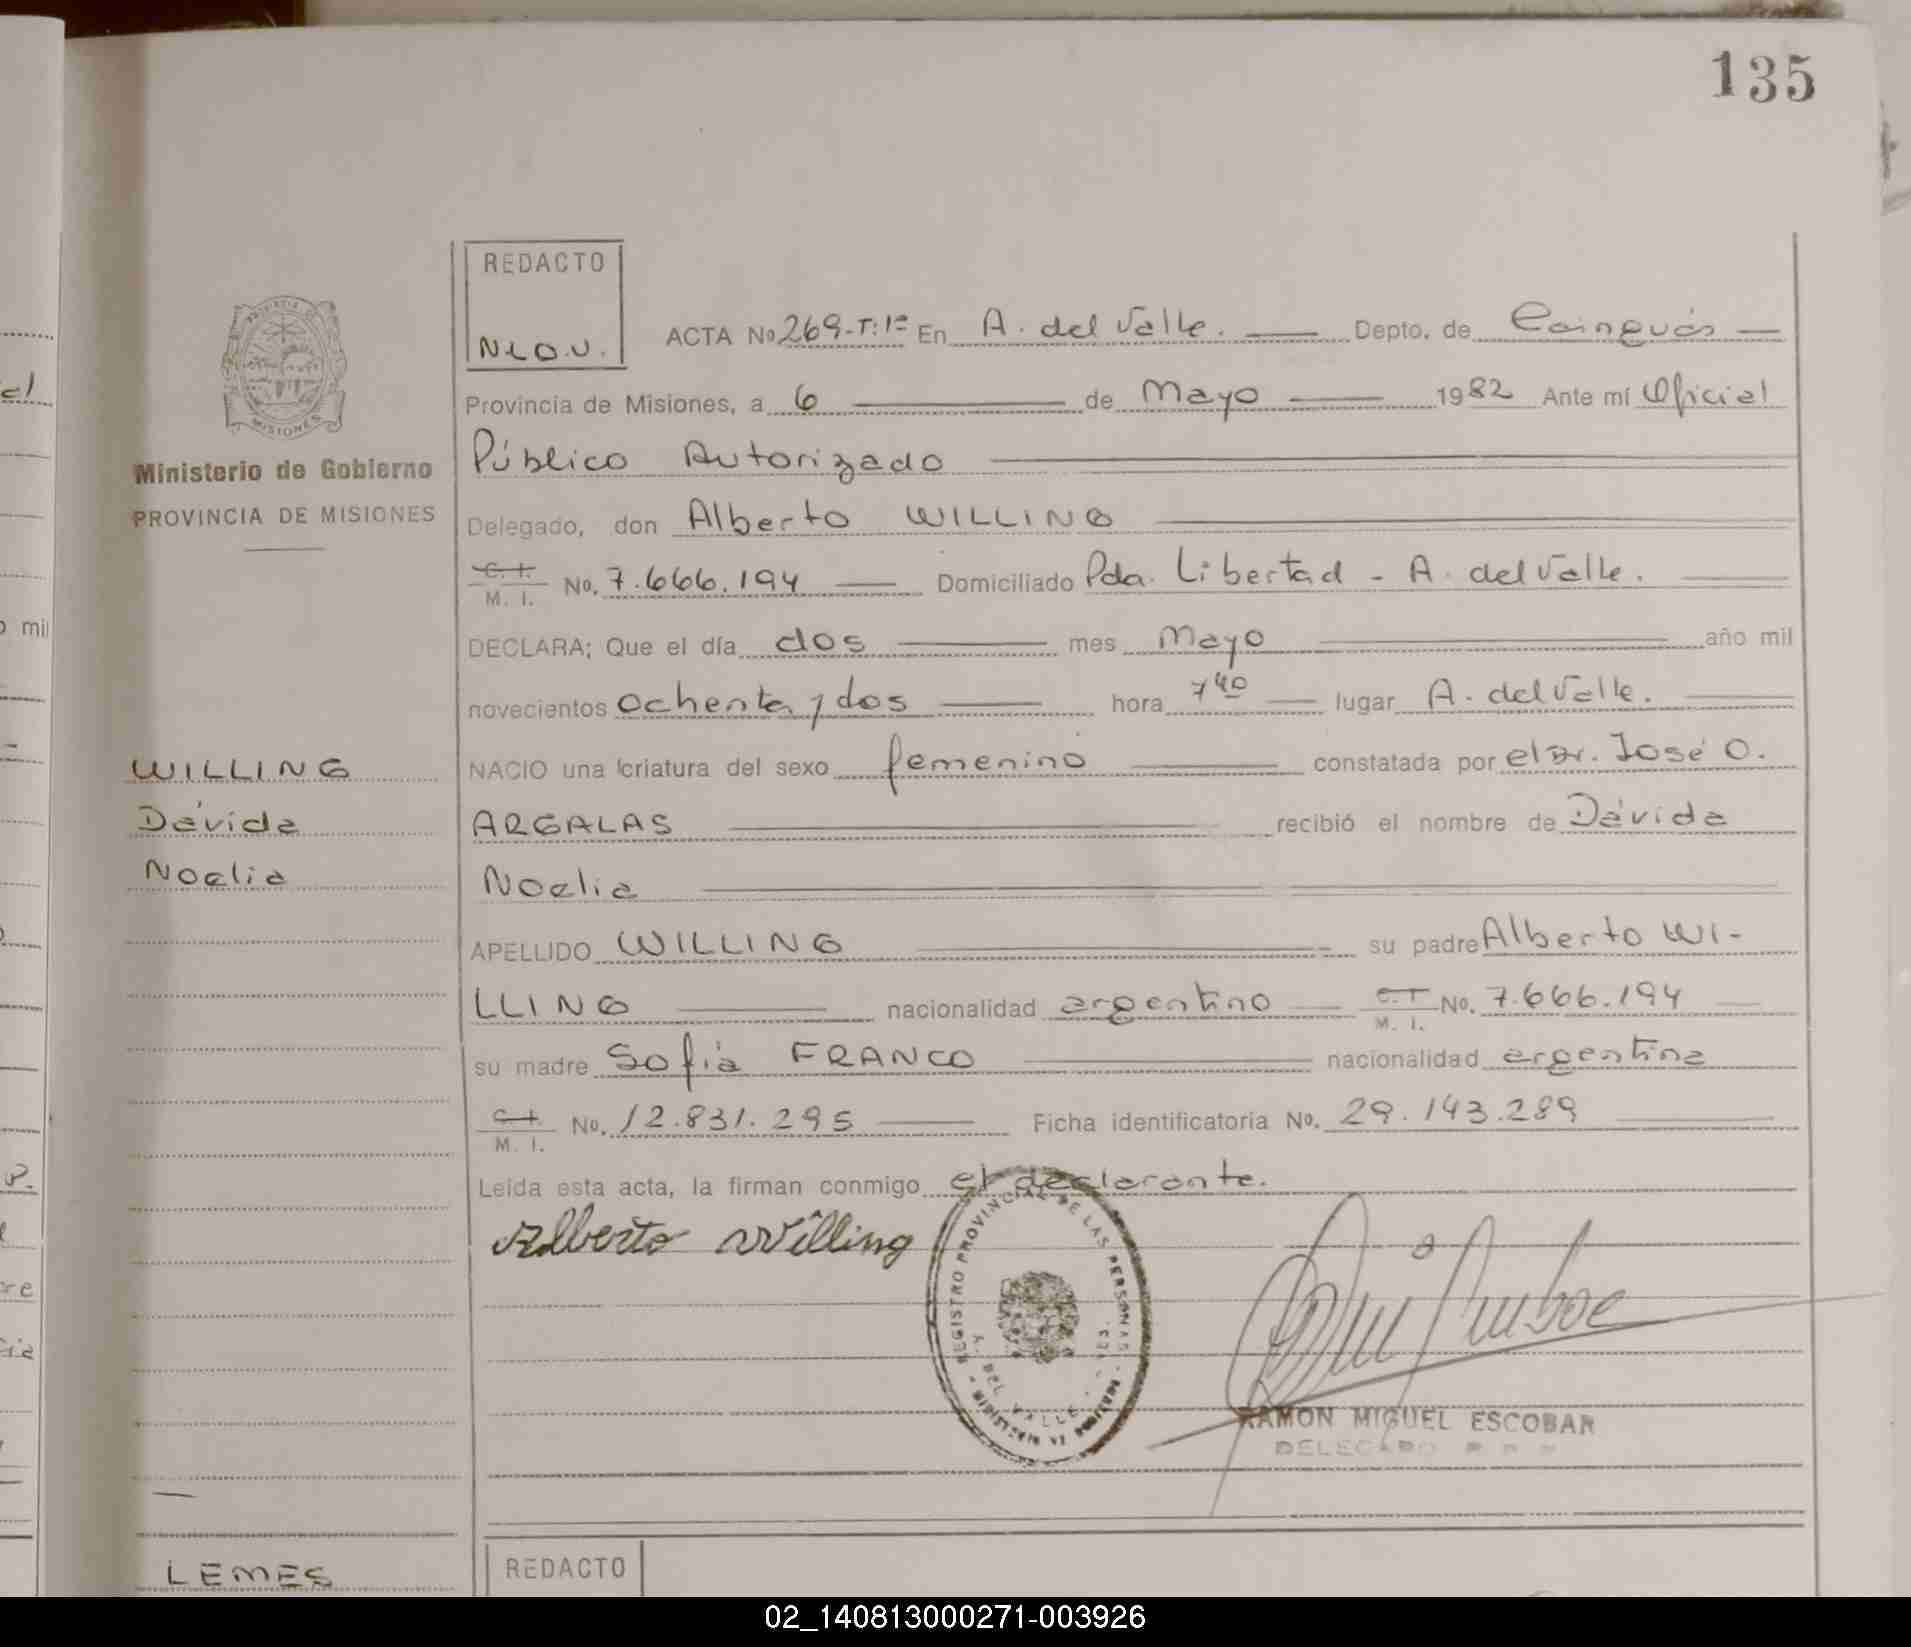 135
REDACTO
N.L.O.V.
ACTA No 269-T:1º En A. del Valle. Depto. de Cainguás
Provincia de Misiones, a 6 de Mayo 1982 Ante mí Oficial
Público Autorizado
Ministerio de Gobierno
PROVINCIA DE MISIONES
Delegado, don Alberto WILLING
C. I.
M. I. No. 7.666.194 Domiciliado Pda. Libertad - A. del Valle.
DECLARA; Que el día dos mes Mayo año mil
novecientos ochenta y dos hora 7 40 lugar A. del Valle.
WILLING
Dávida
Noelia
NACIO una criatura del sexo femenino constatada por el Dr. José O.
ARGALAS recibió el nombre de Dávida
Noelia
APELLIDO WILLING su padre Alberto WI-
LLING nacionalidad argentino C. I. M. I. No. 7.666.194
su madre Sofia FRANCO nacionalidad argentina
C. I.
M. I. No. 12.831.295 Ficha identificatoria No. 29.143.289
Leída esta acta, la firman conmigo el declarante.
Alberto Willing
REGISTRO PROVINCIAL DE LAS PERSONAS
A. DEL VALLE
RAMON MIGUEL ESCOBAR
DELEGADO
LEMES
REDACTO
02_140813000271-003926